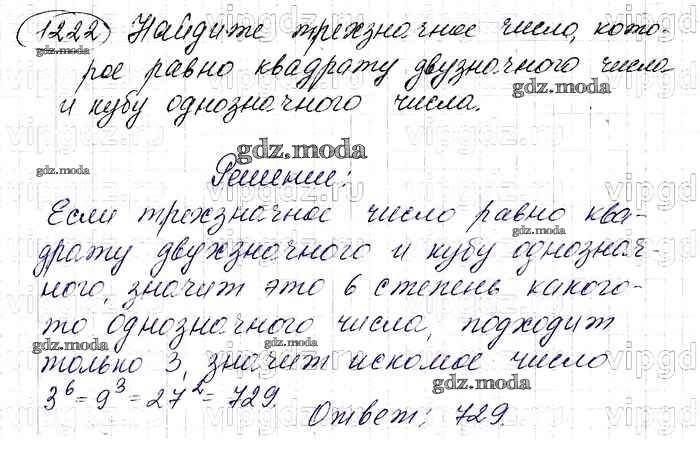 1222 Найдите трехзначное число, кото-
рое равно квадрату двузначного числа
и кубу однозначного числа.
Решение:
Если трехзначное число равно ква-
драту двухзначного и кубу однознач-
ного, значит это 6 степень какого-
то однозначного числа, подходит
только 3, значит искомое число
3⁶ = 9³ = 27² = 729.
Ответ: 729.
gdz.moda
gdz.moda
gdz.moda
gdz.moda
gdz.moda
gdz.moda
gdz.moda
gdz.moda
vipgdz.ru